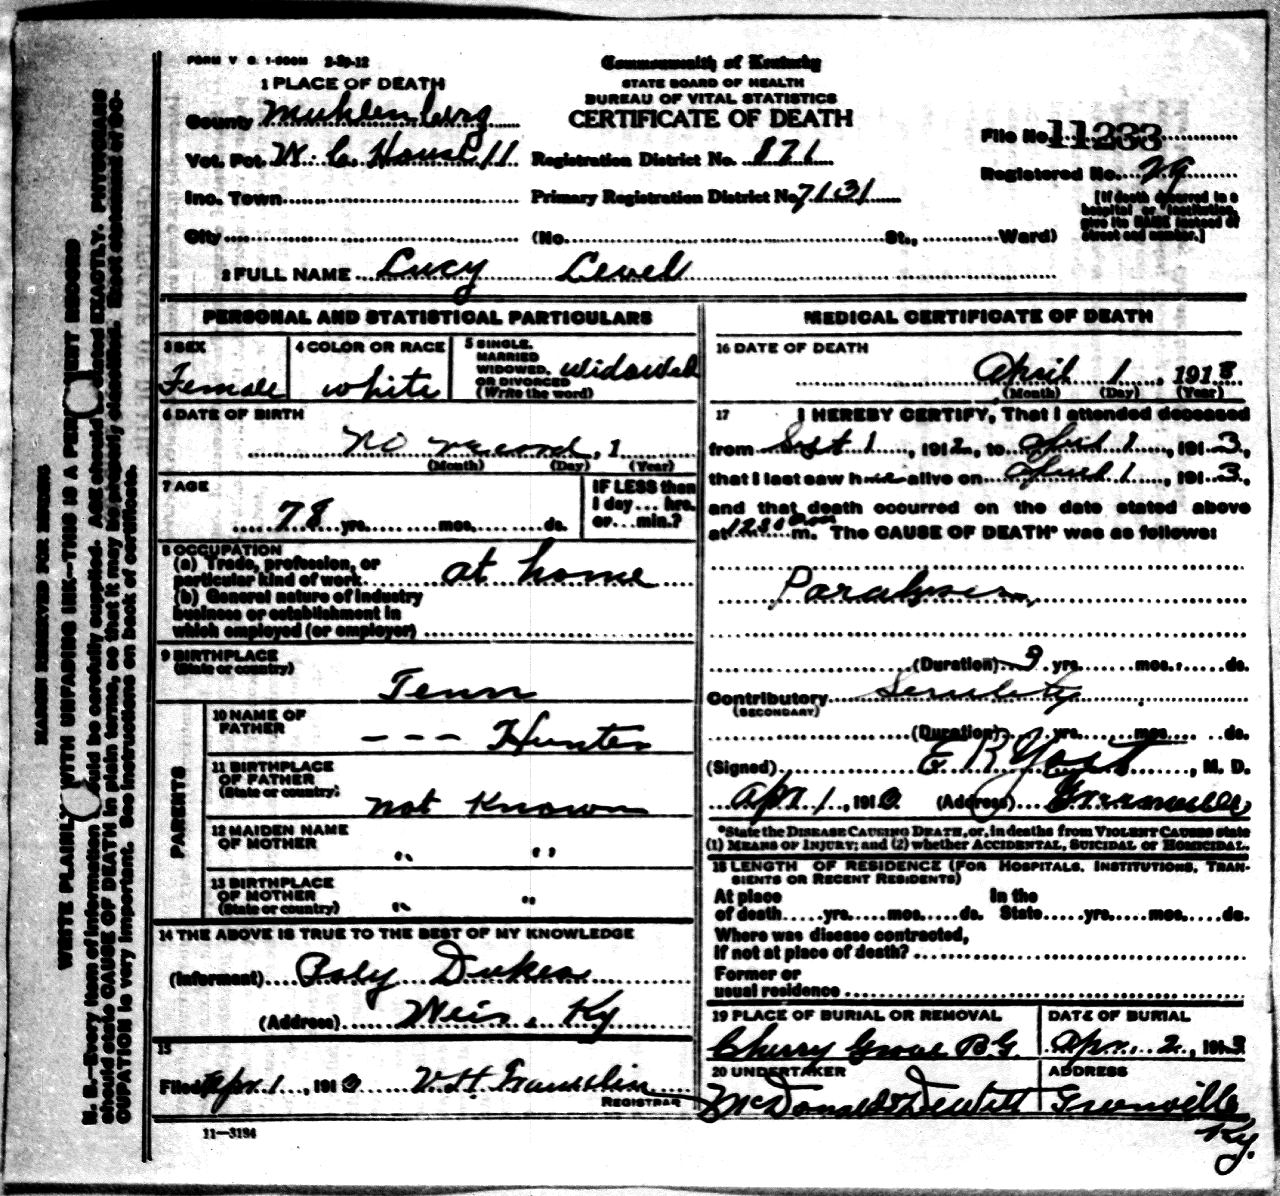 FORM V. S. 1-500M 2-29-12
Commonwealth of Kentucky
STATE BOARD OF HEALTH
BUREAU OF VITAL STATISTICS
CERTIFICATE OF DEATH
1 PLACE OF DEATH
County Muhlenberg
Vot. Pct. W. C. House 11
Registration District No. 871
Inc. Town
Primary Registration District No. 7131
City
(No. St., Ward)
File No. 11233
Registered No. 29
[If death occurred in a hospital or institution, give its NAME instead of street and number.]
2 FULL NAME Lucy Lewell
PERSONAL AND STATISTICAL PARTICULARS
3 SEX
Female
4 COLOR OR RACE
white
5 SINGLE, MARRIED, WIDOWED, OR DIVORCED (Write the word)
widowed
6 DATE OF BIRTH
no record, 1
(Month) (Day) (Year)
7 AGE
78 yrs. mos. ds.
IF LESS than 1 day... hrs. or... min.?
8 OCCUPATION
(a) Trade, profession, or particular kind of work at home
(b) General nature of industry business or establishment in which employed (or employer)
9 BIRTHPLACE
(State or country)
Tenn
PARENTS
10 NAME OF FATHER
--- Hunter
11 BIRTHPLACE OF FATHER
(State or country)
not Known
12 MAIDEN NAME OF MOTHER
" "
13 BIRTHPLACE OF MOTHER
(State or country)
" "
14 THE ABOVE IS TRUE TO THE BEST OF MY KNOWLEDGE
(Informant) Dukes
(Address) Weir, Ky
15
Filed Apr. 1, 191 V. H. Franklin
REGISTRAR
MEDICAL CERTIFICATE OF DEATH
16 DATE OF DEATH
April 1, 1913
(Month) (Day) (Year)
17 I HEREBY CERTIFY, That I attended deceased
from Sept 1, 1912, to April 1, 1913,
that I last saw her alive on April 1, 1913,
and that death occurred on the date stated above
at m. The CAUSE OF DEATH* was as follows:
Paralysis
(Duration) 9 yrs. mos. ds.
Contributory Senility
(SECONDARY)
(Duration) yrs. mos. ds.
(Signed) E R Yost, M. D.
Apr 1, 191 (Address) Greenville
*State the DISEASE CAUSING DEATH, or, in deaths from VIOLENT CAUSES state
(1) MEANS OF INJURY; and (2) whether ACCIDENTAL, SUICIDAL or HOMICIDAL.
18 LENGTH OF RESIDENCE (FOR HOSPITALS, INSTITUTIONS, TRANSIENTS OR RECENT RESIDENTS)
At place of death yrs. mos. ds.
In the State yrs. mos. ds.
Where was disease contracted, if not at place of death?
Former or usual residence
19 PLACE OF BURIAL OR REMOVAL
Cherry Grove B.G.
DATE OF BURIAL
Apr. 2, 1913
20 UNDERTAKER
McDonald & Dewitt
ADDRESS
Greenville Ky.
11—3184
MARGIN RESERVED FOR BINDING
WRITE PLAINLY WITH UNFADING INK—THIS IS A PERMANENT RECORD
N. B.—Every item of information should be carefully supplied. AGE should be stated EXACTLY. PHYSICIANS
should state CAUSE OF DEATH in plain terms, so that it may be properly classified. Exact statement of OC-
CUPATION is very important. See instructions on back of certificate.